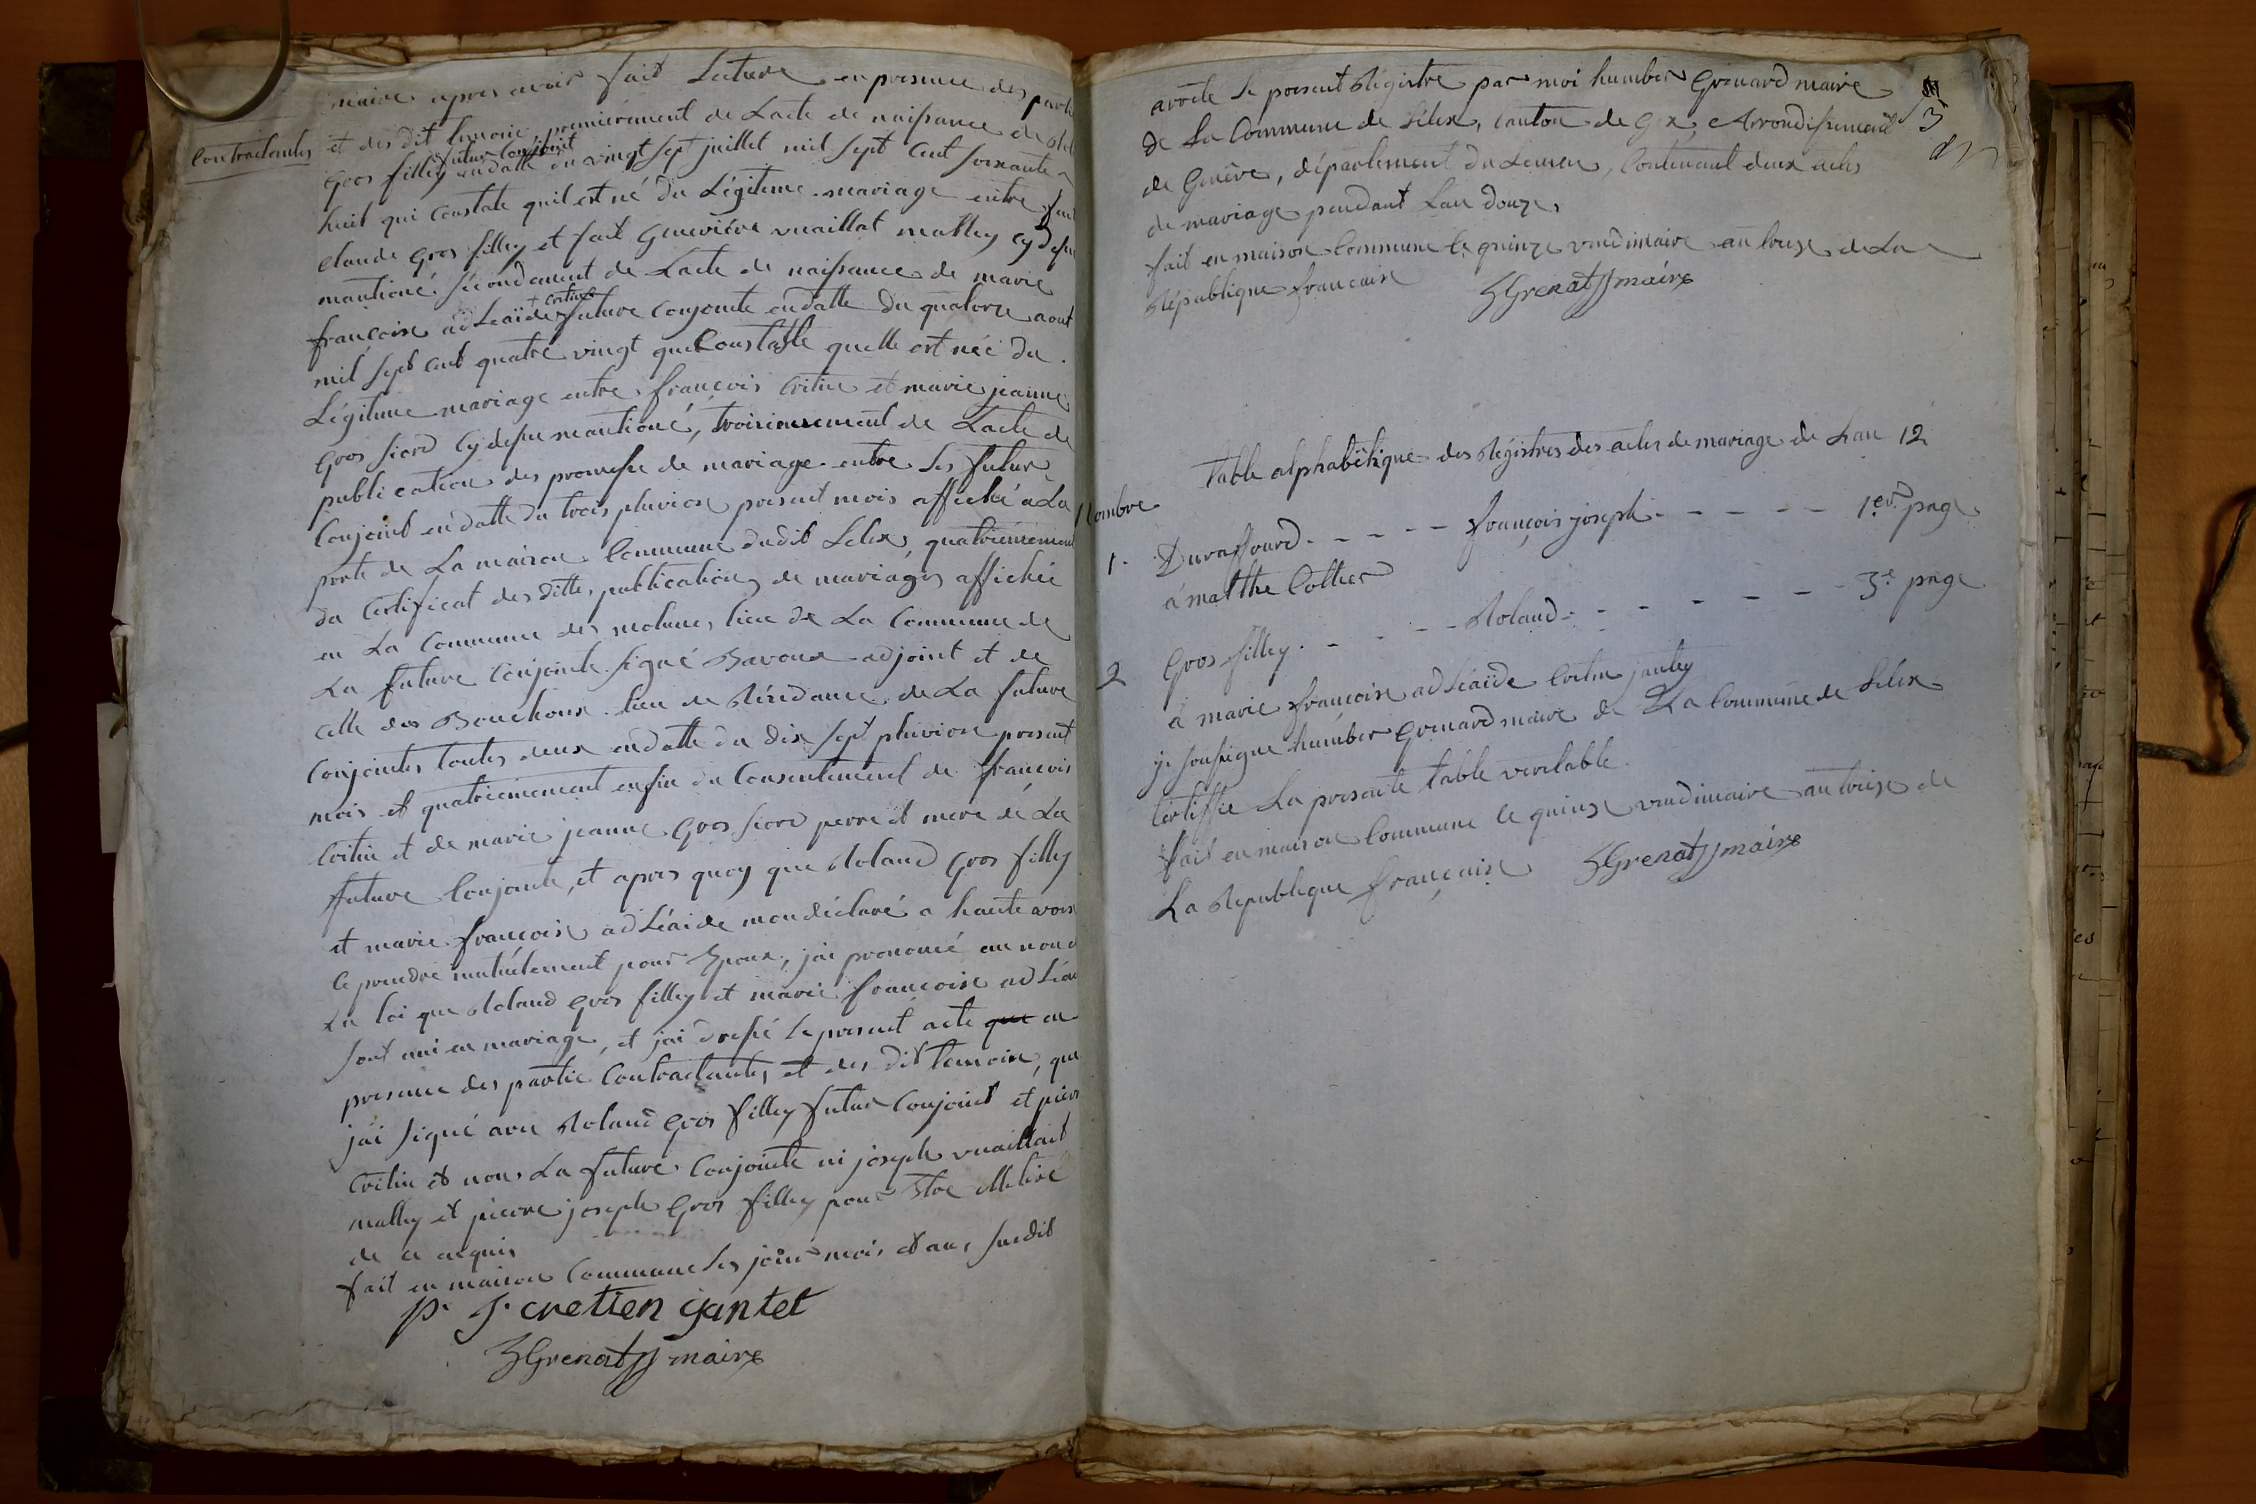 maire apres avoir fait Lecture en presence des partie
Contractantes et des dit temoin, premierement de Lacte de naissance de Rol
futur Conjoint
Gros filley en datte du vingt sept juillet mil sept cent soixante
huit qui Constate quil est né du Légitime mariage entre
claude Gros filley et fait Genevieve vuaillat malley cy desu
mantioné. secondement de Lacte de naissance de marie
cretin
francoise adLeaïde future conjointe en datte du quatorze aout
mil sept cent quatre vingt qui Constatte quelle est née du
Légitime mariage entre francois Critin et marie jeanne
Gros fiord cy desu mantioné, troisiemement de Lacte de
publication des promesse de mariage entre les futur
Conjoint en datte du trois pluviose present mois affiché a La
porte de La maison Commune dudit Lelex, quatriemement
du Certificat des dittes publications de mariages affichée
en La Commune des molunes lieu de La Commune de
La future Conjointe signé Bavoux adjoint et de
celle des Bouchoux lieu de Résidance de La future
Conjointes toutes deux en datte du dix sept pluviose present
mois et quatriemement enfin du Consentement de francois
Critin et de marie jeanne Gros fiord perre et mere de La
future Conjointe, et apres quoy que Roland Gros filley
et marie francoise adLéaide mon déclaré a haute voix
ce prendre mutuelement pour Epoux, jai prononcé au nom d
La loi que Roland Gros filley et marie francoise adLéai
sont uni en mariage, et jai dressé le present acte que en
presence des partie Contractantes et des dit temoin, que
jai signé avec Roland Gros filley futur Conjoint et pierr
Critin et non La future Conjointe ni joseph vuaillait
malley et pierre joseph Gros filley pour Etre illetiré
de ce requis
fait en maison Commune Les jour mois et an, susdit
P. J. cretien jantet
hGrenat maire
arrete le present Régistre par moi humber Grenard maire
de La Commune de Lélex, Canton de Gex, Arrondissement
de Genève, département du Leman, Contenant deux actes
de mariage pendant Lan douze,
fait en maison Commune le quinze vendimiaire an treize de La
République francaise hGrenat maire
3
Table alphabétique des Régistres des actes de mariage de Lan 12
Nombre
1. Duraffourd - - - - françois joseph - - - - - 1er page
à marthe Cottier
2 Gros filley - - - - Roland - - - - - - 3e page
à marie francoise adLéaïde Critin jantey
je soussigne humber Grenard maire de La Commune de Lélex
Certiffie La presente table veritable.
fait en maison Commune le quinze vendimiaire an treize de
La Republique française hGrenat maire